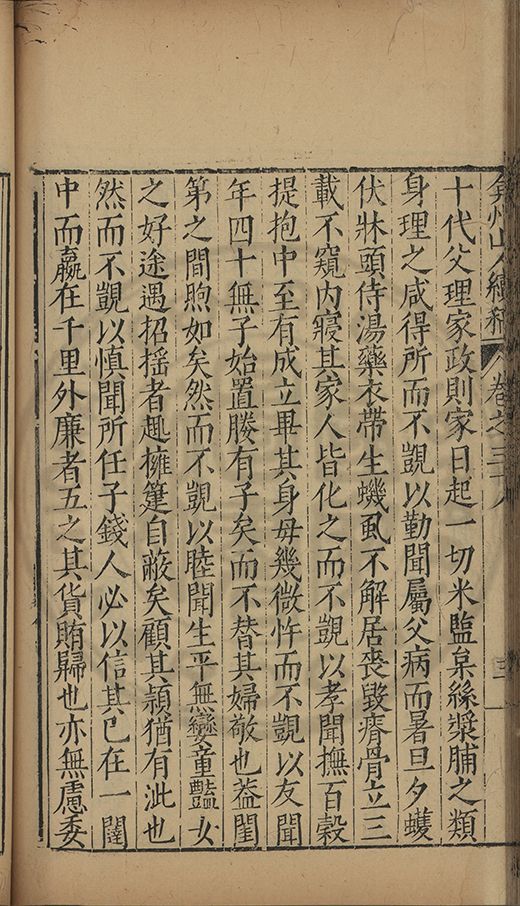 弇州山人續稿 卷之三十八 三
十代父理家政則家日起一切米監枲絲漿脯之類
身理之咸得所而不覬以勤聞屬父病而暑旦夕蠖
伏牀頭侍湯藥衣帶生蟣虱不解居喪毀瘠骨立三
載不窺內寢其家人皆化之而不覬以孝聞撫百穀
提抱中至有成立畢其身毋幾微忤而不覬以友聞
年四十無子始置媵有子矣而不替其婦敬也葢閨
第之間煦如矣然而不覬以睦聞生平無孌童豔女
之好途遇招揺者趣擁箑自蔽矣顧其顙猶有泚也
然而不覬以慎聞所任子錢人必以信其已在一闥
中而嬴在千里外廉者五之其貨賄歸也亦無慮委